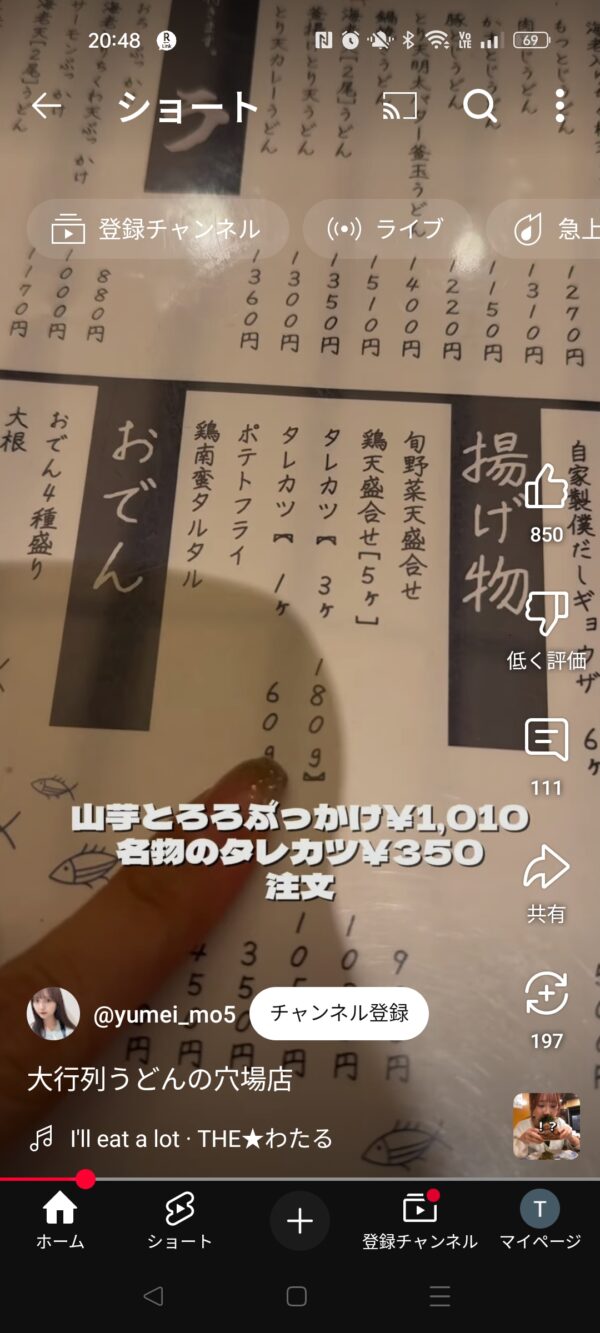 20:48
R
Link
VO
LTE
69
ショート
登録チャンネル
ライブ
急上
1270円
1310円
1150円
1220円
1400円
1510円
1350円
1300円
1360円
880円
1000円
1170円
自家製僕だしギョウザ 6ヶ
揚げ物
旬野菜天盛合せ
鶏天盛合せ[5ヶ]
タレカツ【 3ヶ 180g】
タレカツ【 1ヶ 60g
ポテトフライ
鶏南蛮タルタル
おでん
おでん4種盛り
大根
山芋とろろぶっかけ¥1,010
名物のタレカツ¥350
注文
850
低く評価
111
共有
197
@yumei_mo5
チャンネル登録
大行列うどんの穴場店
I'll eat a lot · THE★わたる
! ?
ホーム
ショート
登録チャンネル
T
マイページ